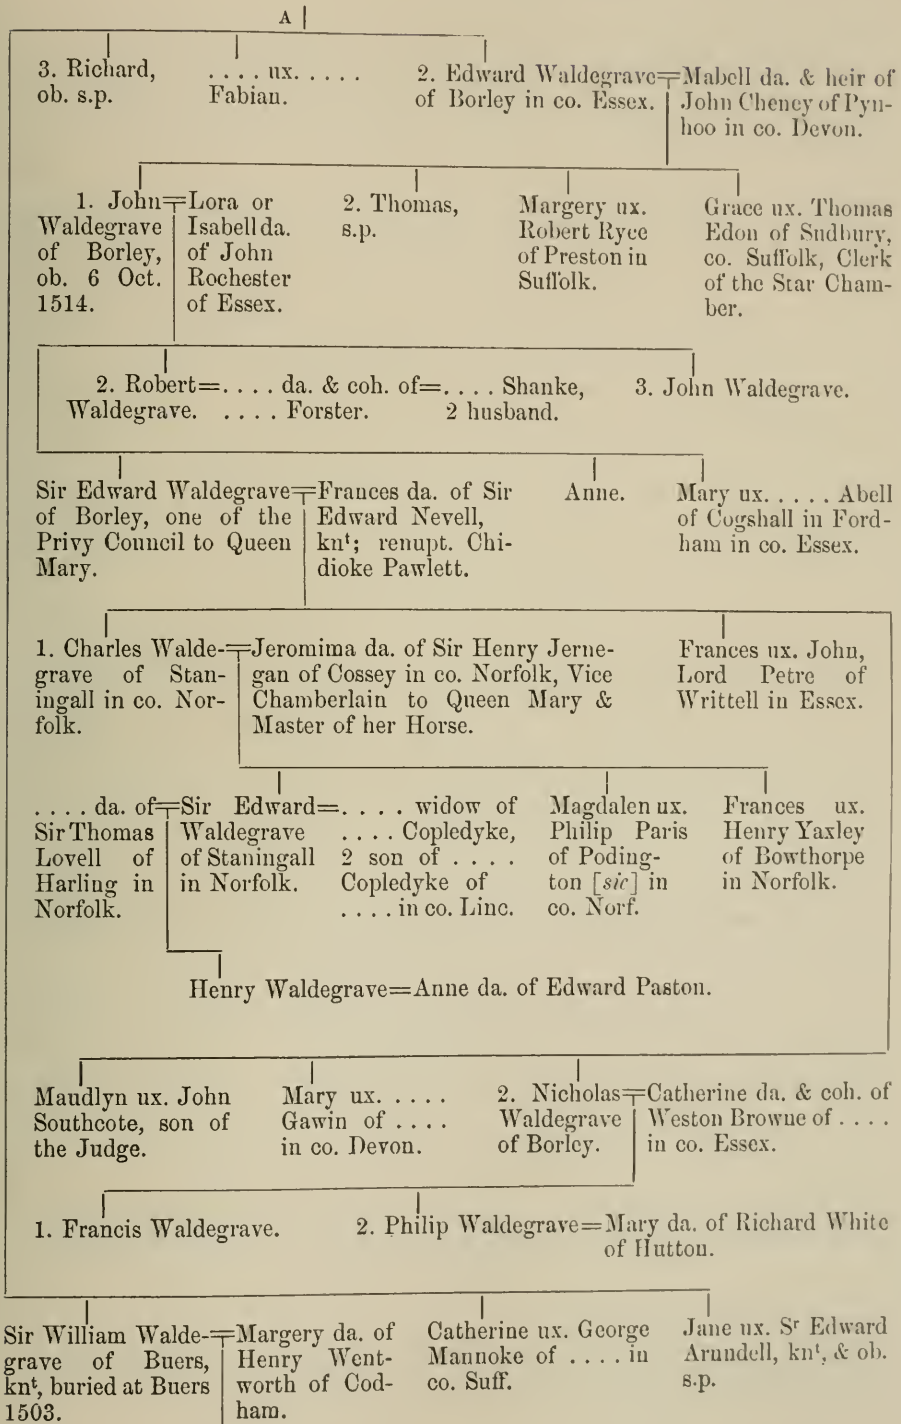 A
3. Richard,
ob. s.p.
. . . . ux. . . . .
Fabian.
2. Edward Waldegrave=Mabell da. & heir of
of Borley in co. Essex.
John Cheney of Pyn-
hoo in co. Devon.
1. John=Lora or
Waldegrave
of Borley,
ob. 6 Oct.
1514.
Isabell da.
of John
Rochester
of Essex.
2. Thomas,
s.p.
Margery ux.
Robert Ryce
of Preston in
Suffolk.
Grace ux. Thomas
Edon of Sudbury,
co. Suffolk, Clerk
of the Star Cham-
ber.
2. Robert=. . . . da. & coh. of=. . . . Shanke,
Waldegrave. . . . . Forster. 2 husband.
3. John Waldegrave.
Sir Edward Waldegrave=Frances da. of Sir
of Borley, one of the
Privy Council to Queen
Mary.
Edward Nevell,
knt; renupt. Chi-
dioke Pawlett.
Anne.
Mary ux. . . . . Abell
of Cogshall in Ford-
ham in co. Essex.
1. Charles Walde-=Jeromima da. of Sir Henry Jerne-
grave of Stan-
ingall in co. Nor-
folk.
gan of Cossey in co. Norfolk, Vice
Chamberlain to Queen Mary &
Master of her Horse.
Frances ux. John,
Lord Petre of
Writtell in Essex.
. . . . da. of=Sir Edward=. . . . widow of
Sir Thomas
Lovell of
Harling in
Norfolk.
Waldegrave
of Staningall
in Norfolk.
. . . . Copledyke,
2 son of . . . .
Copledyke of
. . . . in co. Linc.
Magdalen ux.
Philip Paris
of Poding-
ton [sic] in
co. Norf.
Frances ux.
Henry Yaxley
of Bowthorpe
in Norfolk.
Henry Waldegrave=Anne da. of Edward Paston.
Maudlyn ux. John
Southcote, son of
the Judge.
Mary ux. . . . .
Gawin of . . . .
in co. Devon.
2. Nicholas=Catherine da. & coh. of
Waldegrave
of Borley.
Weston Browne of . . . .
in co. Essex.
1. Francis Waldegrave.
2. Philip Waldegrave=Mary da. of Richard White
of Hutton.
Sir William Walde-=Margery da. of
grave of Buers,
knt, buried at Buers
1503.
Henry Went-
worth of Cod-
ham.
Catherine ux. George
Mannoke of . . . . in
co. Suff.
Jane ux. Sr Edward
Arundell, knt, & ob.
s.p.